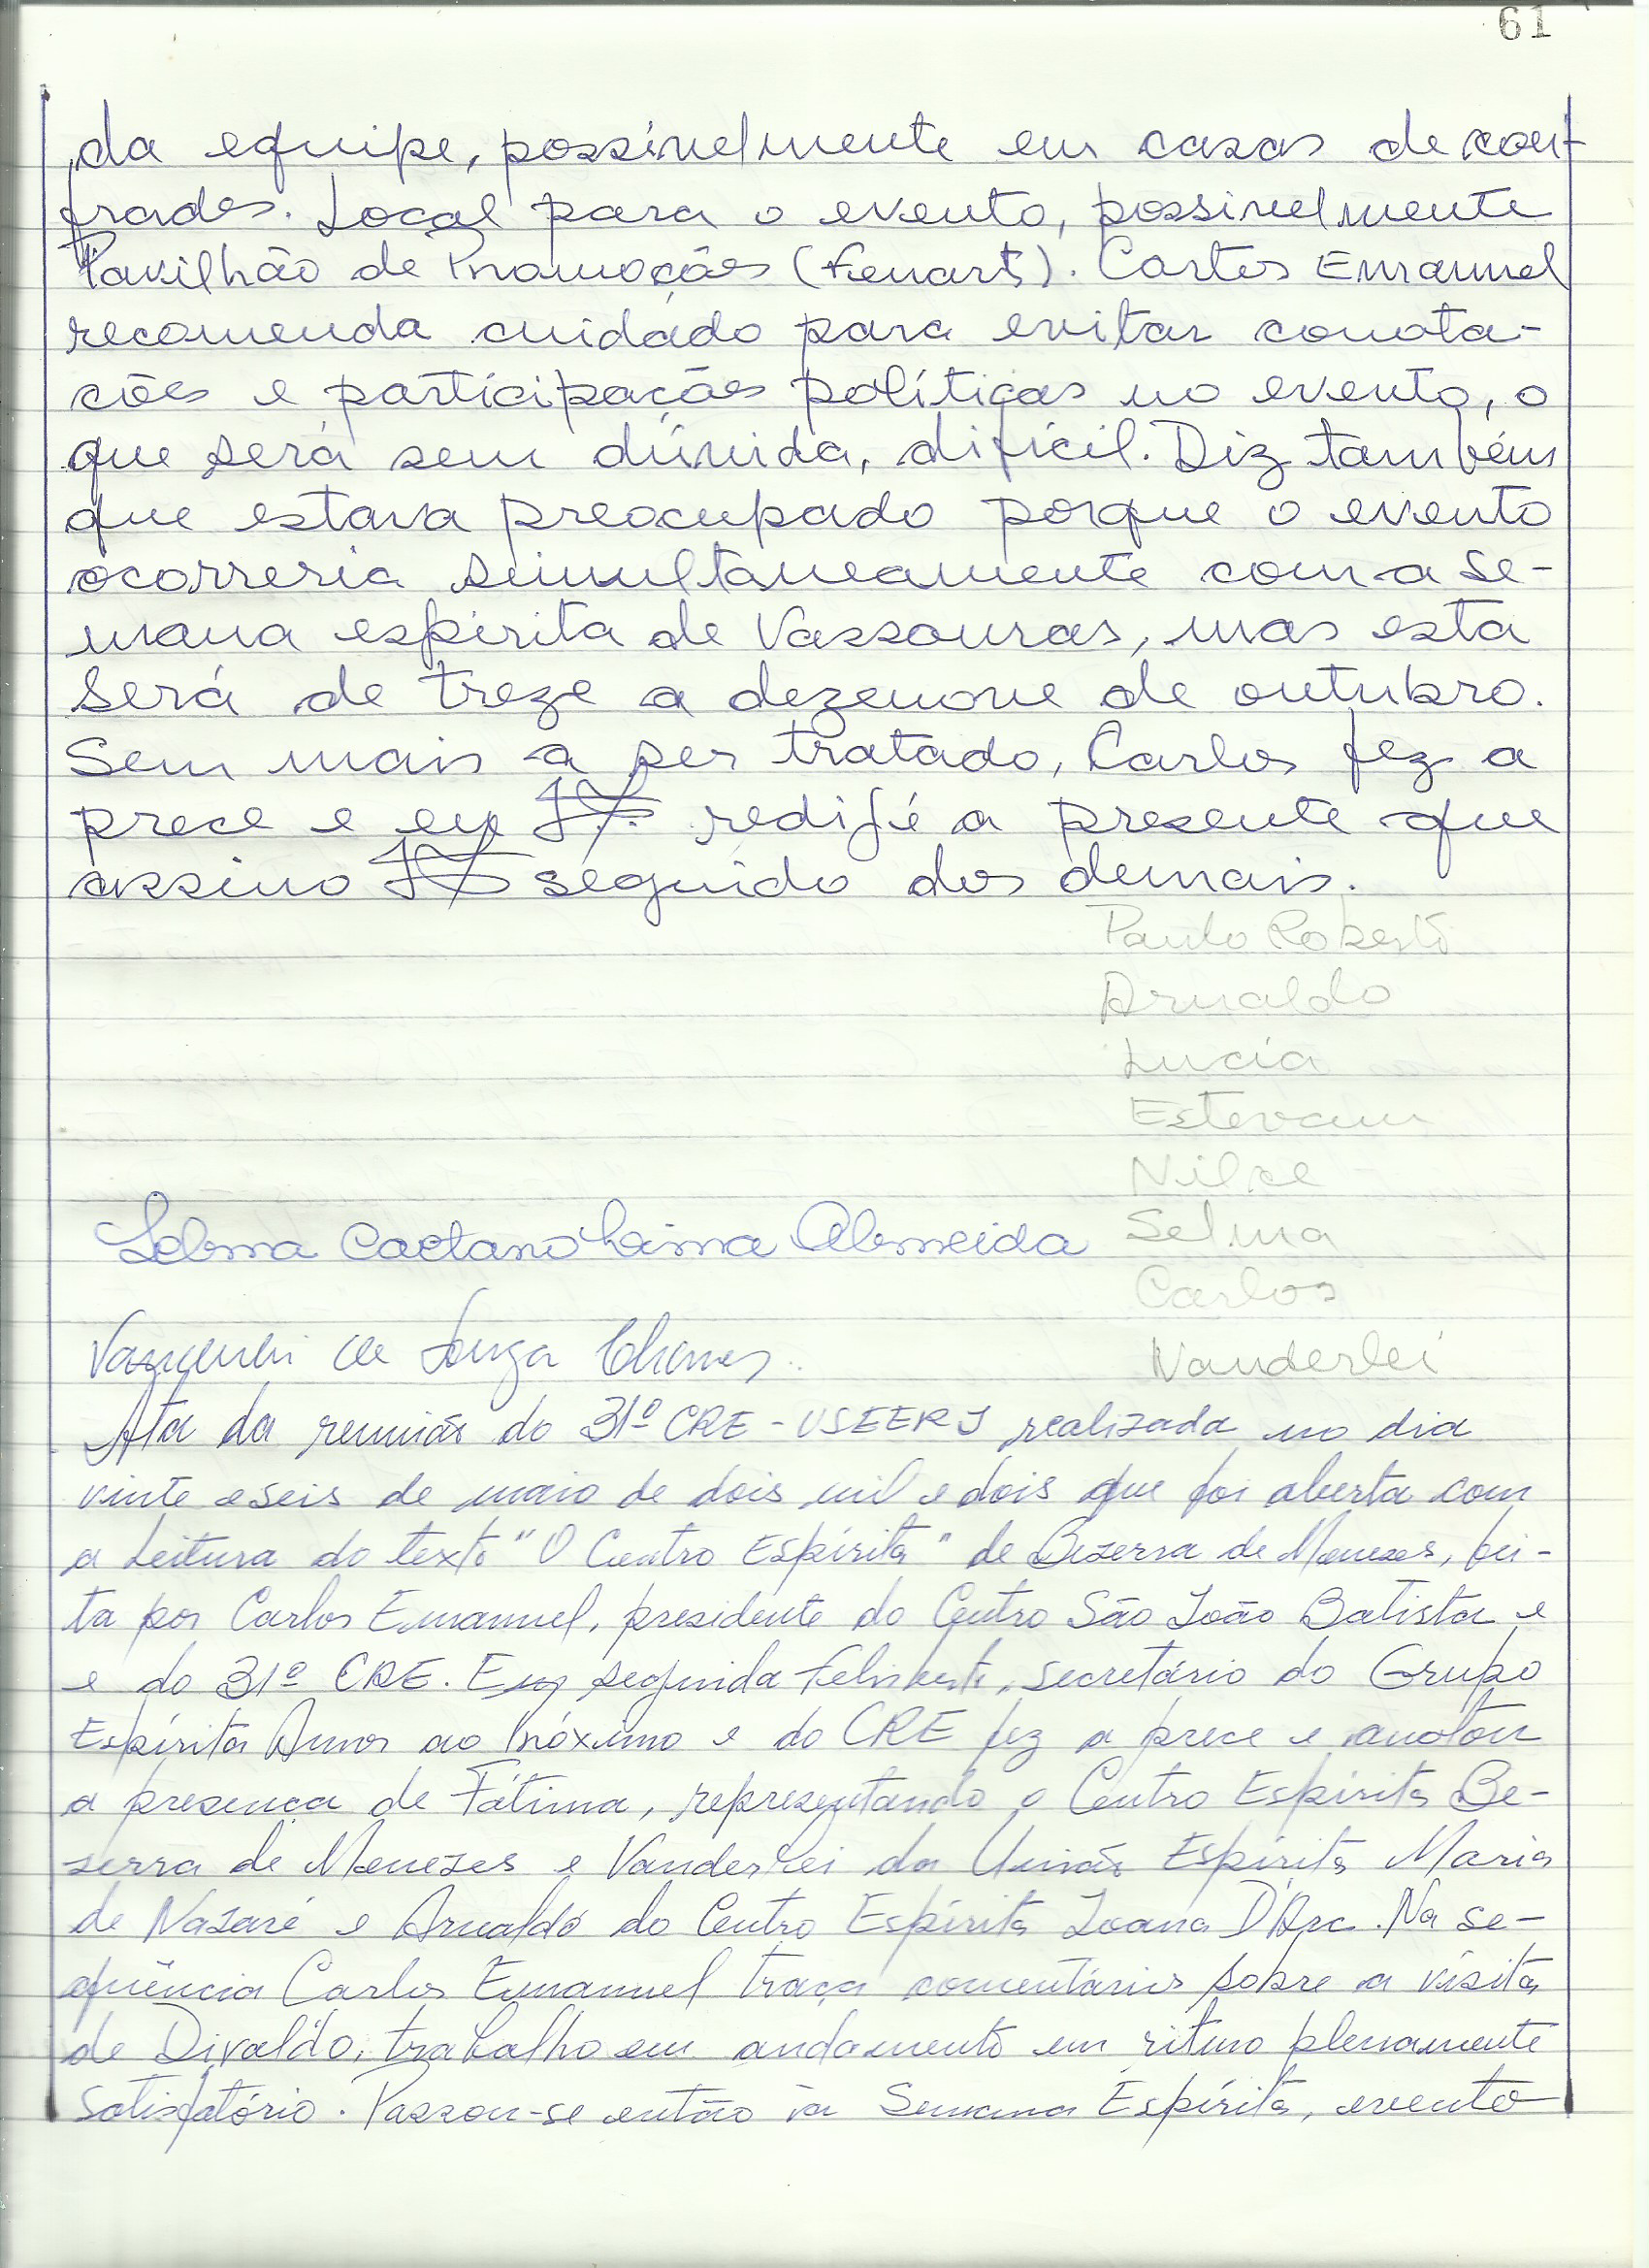 61
da equipe, possivelmente em casas de con-
frades. Local para o evento, possivelmente
Pavilhão de Promoções (Fenart). Carlos Emanuel
recomenda cuidado para evitar conota-
ções e participações políticas no evento, o
que será sem dúvida, difícil. Diz também
que estava preocupado porque o evento
ocorreria simultaneamente com a se-
mana espírita de Vassouras, mas esta
será de treze a dezenove de outubro.
Sem mais a ser tratado, Carlos fez a
prece e eu redijé a presente que
assino seguido dos demais.
Paulo Roberto
Arnaldo
Lucia
Estevam
Nilse
Selma
Selma Caetano Lima Almeida
Carlos
de Souza
Vanderlei
Ata da reunião do 31º CRE - USEERJ realizada no dia
vinte e seis de maio de dois mil e dois que foi aberta com
a leitura do texto "O Centro Espírita" de Bezerra de Menezes, fei-
ta por Carlos Emanuel, presidente do Centro São João Batista e
e do 31º CRE. Em seguida Felisberto, secretário do Grupo
Espírita Amor ao Próximo e do CRE fez a prece e anotou
a presença de Fátima, representando o Centro Espírita Be-
zerra de Menezes e Vanderlei da União Espírita Maria
de Nazaré e Arnaldo do Centro Espírita Joana D'Arc. Na se-
quência Carlos Emanuel traça comentários sobre a visita
de Divaldo, trabalho em andamento em ritmo plenamente
satisfatório. Passou-se então à Semana Espírita, evento